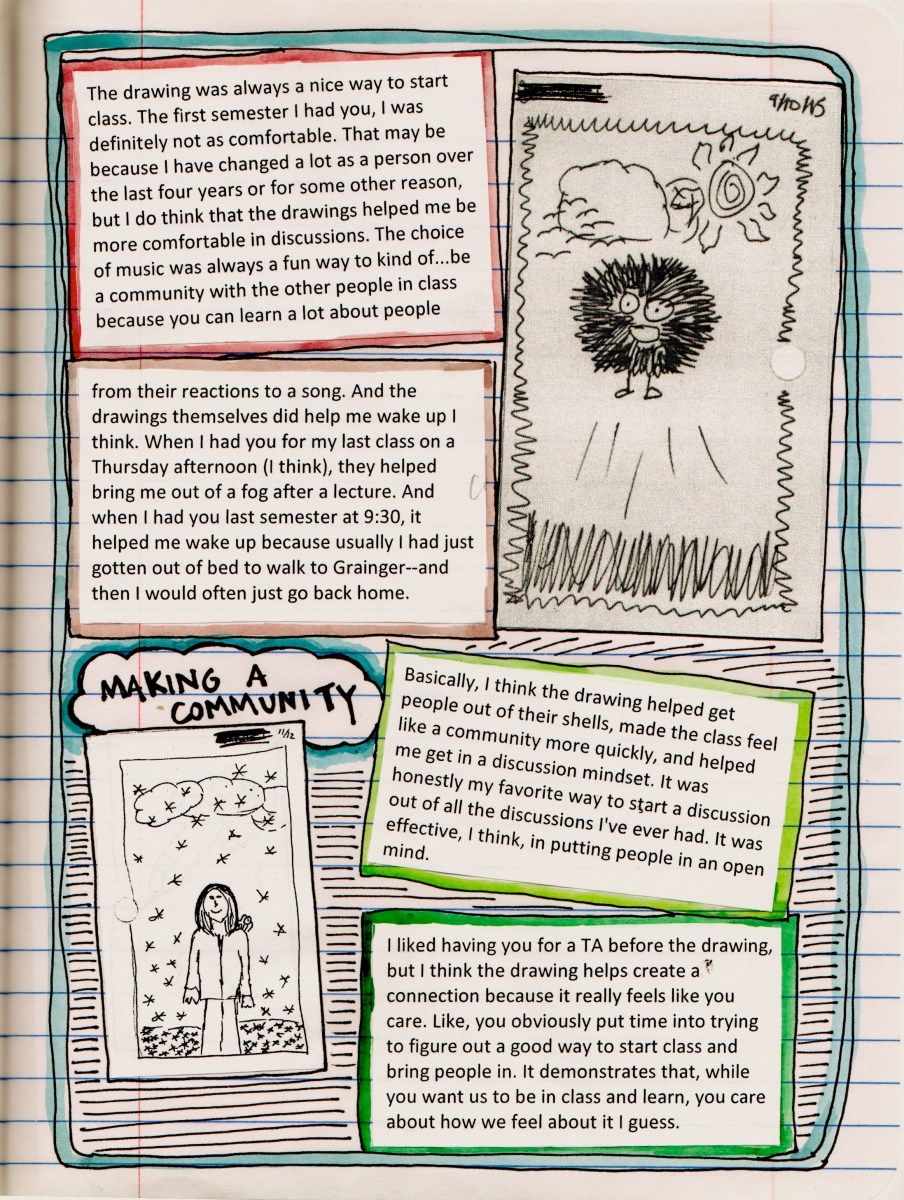 The drawing was always a nice way to start
class. The first semester I had you, I was
definitely not as comfortable. That may be
because I have changed a lot as a person over
the last four years or for some other reason,
but I do think that the drawings helped me be
more comfortable in discussions. The choice
of music was always a fun way to kind of...be
a community with the other people in class
because you can learn a lot about people
9/10/15
from their reactions to a song. And the
drawings themselves did help me wake up I
think. When I had you for my last class on a
Thursday afternoon (I think), they helped
bring me out of a fog after a lecture. And
when I had you last semester at 9:30, it
helped me wake up because usually I had just
gotten out of bed to walk to Grainger--and
then I would often just go back home.
MAKING A
COMMUNITY
11/12
Basically, I think the drawing helped get
people out of their shells, made the class feel
like a community more quickly, and helped
me get in a discussion mindset. It was
honestly my favorite way to start a discussion
out of all the discussions I've ever had. It was
effective, I think, in putting people in an open
mind.
I liked having you for a TA before the drawing,
but I think the drawing helps create a
connection because it really feels like you
care. Like, you obviously put time into trying
to figure out a good way to start class and
bring people in. It demonstrates that, while
you want us to be in class and learn, you care
about how we feel about it I guess.